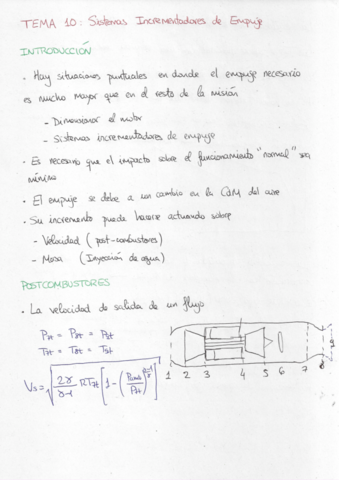 TEMA 10: Sistemas Incrementadores de Empuje
INTRODUCCIÓN
· Hay situaciones puntuales en donde el empuje necesario
es mucho mayor que en el resto de la misión
- Dimensionar el motor
- Sistemas incrementadores de empuje
· Es necesario que el impacto sobre el funcionamiento "normal" sea
mínimo
· El empuje se debe a un cambio en la CdM del aire
· Su incremento puede hacerse actuando sobre
- Velocidad (post-combustores)
- Masa (Inyección de agua)
POSTCOMBUSTORES
· La velocidad de salida de un flujo
P7t = P8t = P9t
T7t = T8t = T9t
Vs = √(2γ/(γ-1) R T7t [1 - (Pamb/P7t)^((γ-1)/γ)])
1 2 3 4 5 6 7 8